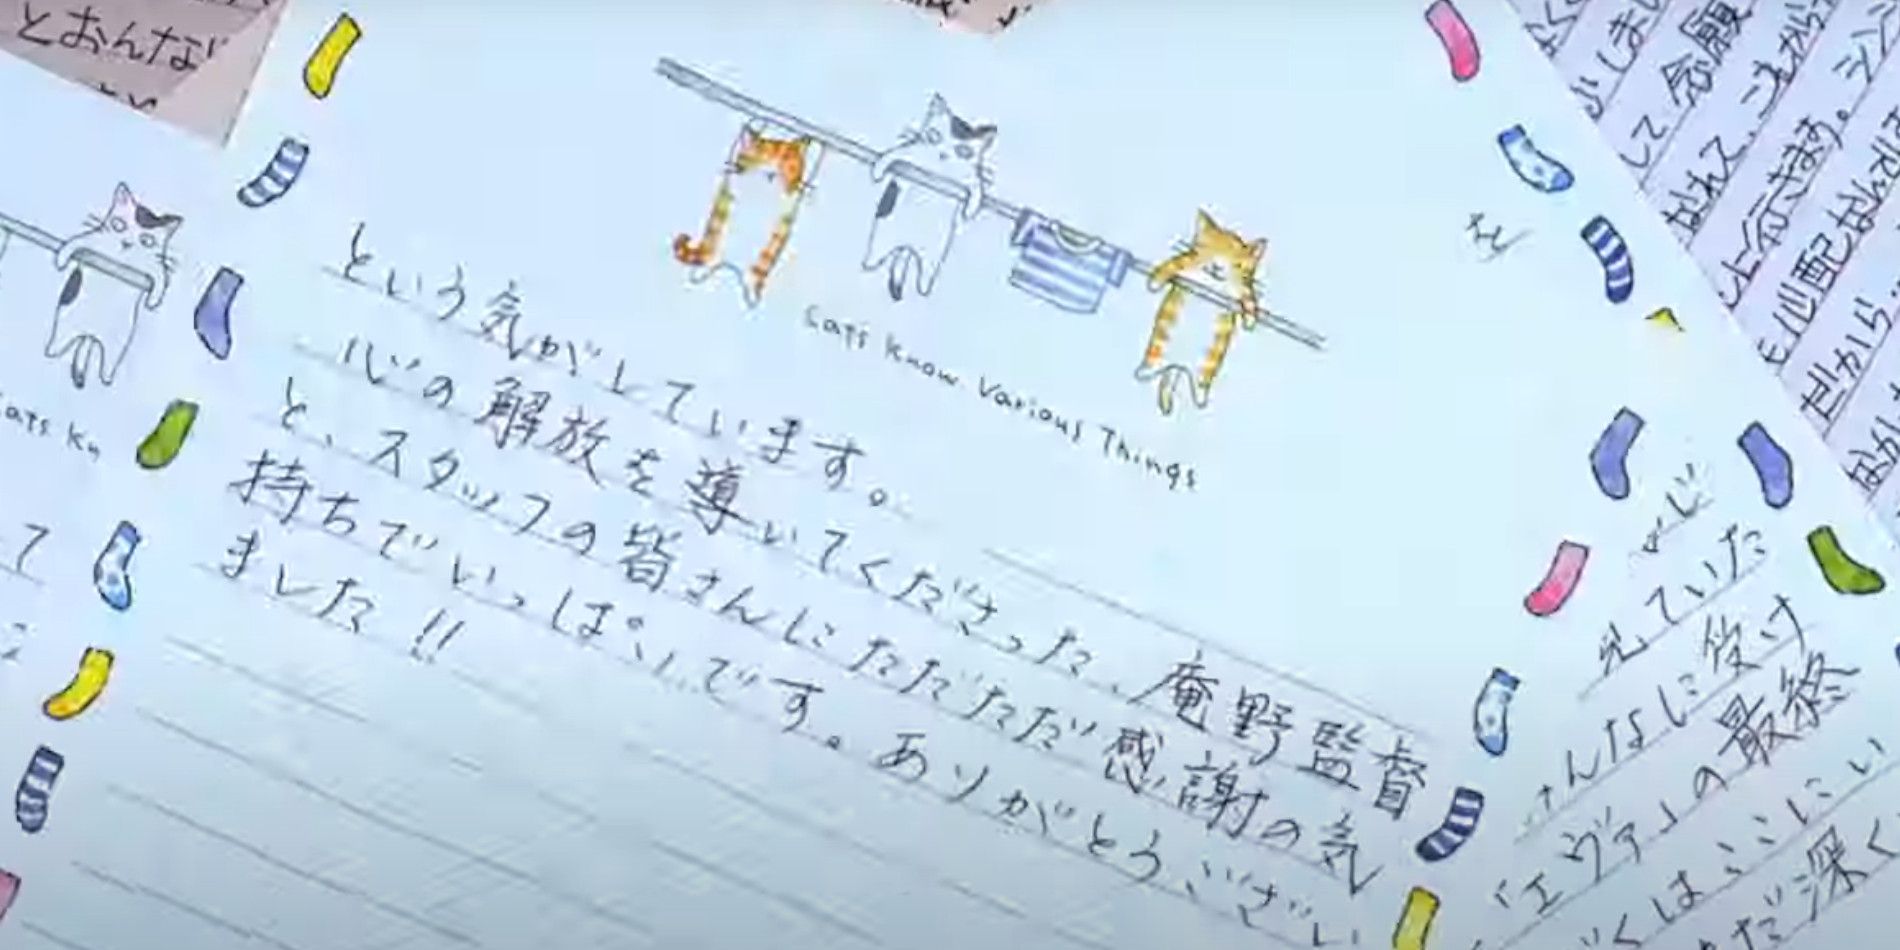 とおんなが
Cats Know Various Things
という気がしています。
心の解放を導いてくださった、庵野監督
と、スタッフの皆さんにただただ感謝の気
持ちでいっぱいです。ありがとうござい
ました!!
Cats Kn
て
して念願
上行きます。
も心配なんです
だから
えていた
んなに受け
「エヴァ」の最終
くはここにい
だ深く